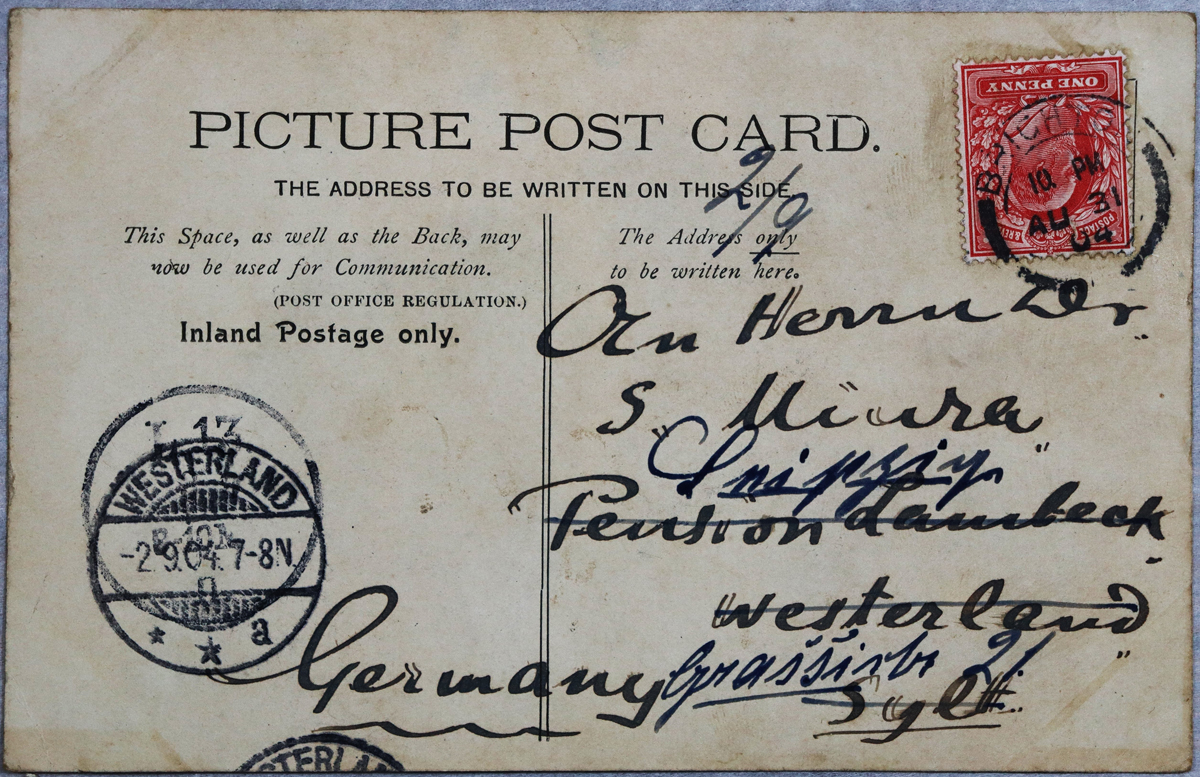 PICTURE POST CARD.
THE ADDRESS TO BE WRITTEN ON THIS SIDE.
2/9
This Space, as well as the Back, may
now be used for Communication.
(POST OFFICE REGULATION.)
Inland Postage only.
The Address only
to be written here.
ONE PENNY
POSTAGE & REV
10 PM
AU 31
04
An Herrn Dr.
S. Miura
Leipzig
Pension Lambeck
Westerland
Grassistr 21
Sylt
Germany
WESTERLAND
-2.9.04.7-8N.
a
WESTERLAN